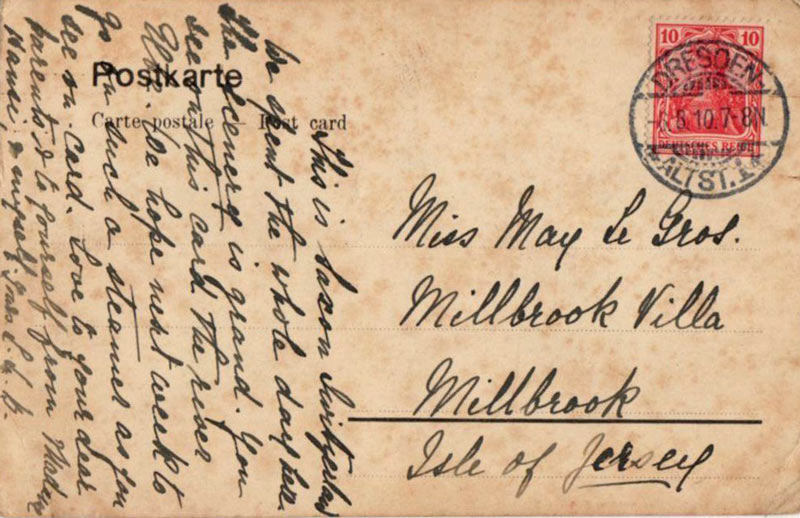 Postkarte
Carte postale — Post card
10 10
DEUTSCHES REICH
DRESDEN-
8.10.7-8N.
ALTST.
Miss May Le Gros.
Millbrook Villa
Millbrook
Isle of Jersey
This is Saxon Switzerland
We spent the whole day here.
The Scenery is grand. You
see on this card the river
Elbe. We hope next week to
Go on such a steamer as you
see on card. Love to your dear
parents & to yourself from
Hansi, & myself. Yours